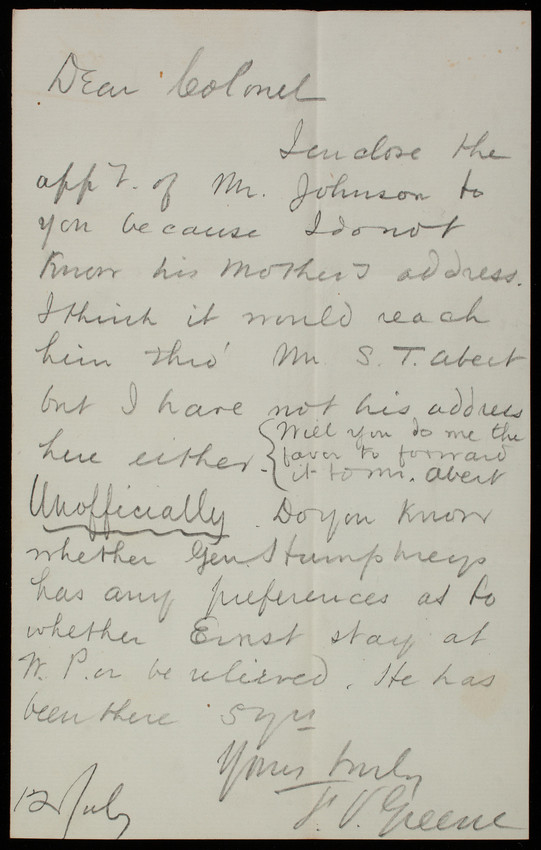 Dear Colonel
I enclose the
app't. of Mr. Johnson to
you because I do not
know his Mother's address.
I think it would reach
him thro' Mr S. T. Abert
but I have not his address
here either.
{Will you do me the
favor to forward
it to Mr. Abert
Unofficially Do you know
whether Gen. Humphreys
has any preferences as to
whether Ernst stay at
W. P. or be relieved. He has
been there 5 yrs
Yours truly
F. V. Greene
12 July